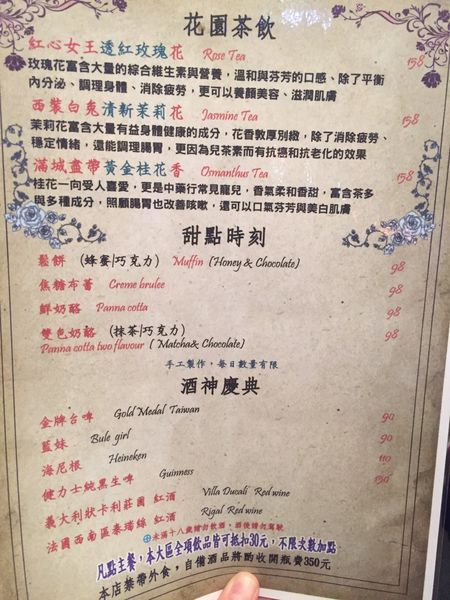 花園茶飲
紅心女王透紅玫瑰花 Rose Tea 158
玫瑰花富含大量的綜合維生素與營養，溫和與芬芳的口感、除了平衡
內分泌、調理身體、消除疲勞，更可以養顏美容、滋潤肌膚
西裝白兔清新茉莉花 Jasmine Tea 158
茉莉花富含大量有益身體健康的成分，花香敦厚別緻，除了消除疲勞、
穩定情緒，還能調理腸胃，更因為兒茶素而有抗癌和抗老化的效果
滿城盡帶黃金桂花香 Osmanthus Tea 158
桂花一向受人喜愛，更是中藥行常見寵兒，香氣柔和香甜，富含茶多
與多種成分，照顧腸胃也改善咳嗽，還可以口氣芬芳與美白肌膚
甜點時刻
鬆餅 (蜂蜜|巧克力) Muffin (Honey & Chocolate) 98
焦糖布蕾 Creme brulee 98
鮮奶酪 Panna cotta 98
雙色奶酪 (抹茶|巧克力) 98
Panna cotta two flavour ( Matcha& Chocolate)
手工製作，每日數量有限
酒神慶典
金牌台啤 Gold Medal Taiwan 90
藍妹 Bule girl 90
海尼根 Heineken 110
健力士純黑生啤 Guinness 150
義大利狀卡利莊園 紅酒 Villa Ducali Red wine
法國西南區泰瑞絲 紅酒 Rigal Red wine
未滿十八歲請勿飲酒，酒後請勿駕駛
凡點主餐，本大區全項飲品皆可抵扣30元，不限次數加點
本店禁帶外食，自備酒品將酌收開瓶費350元